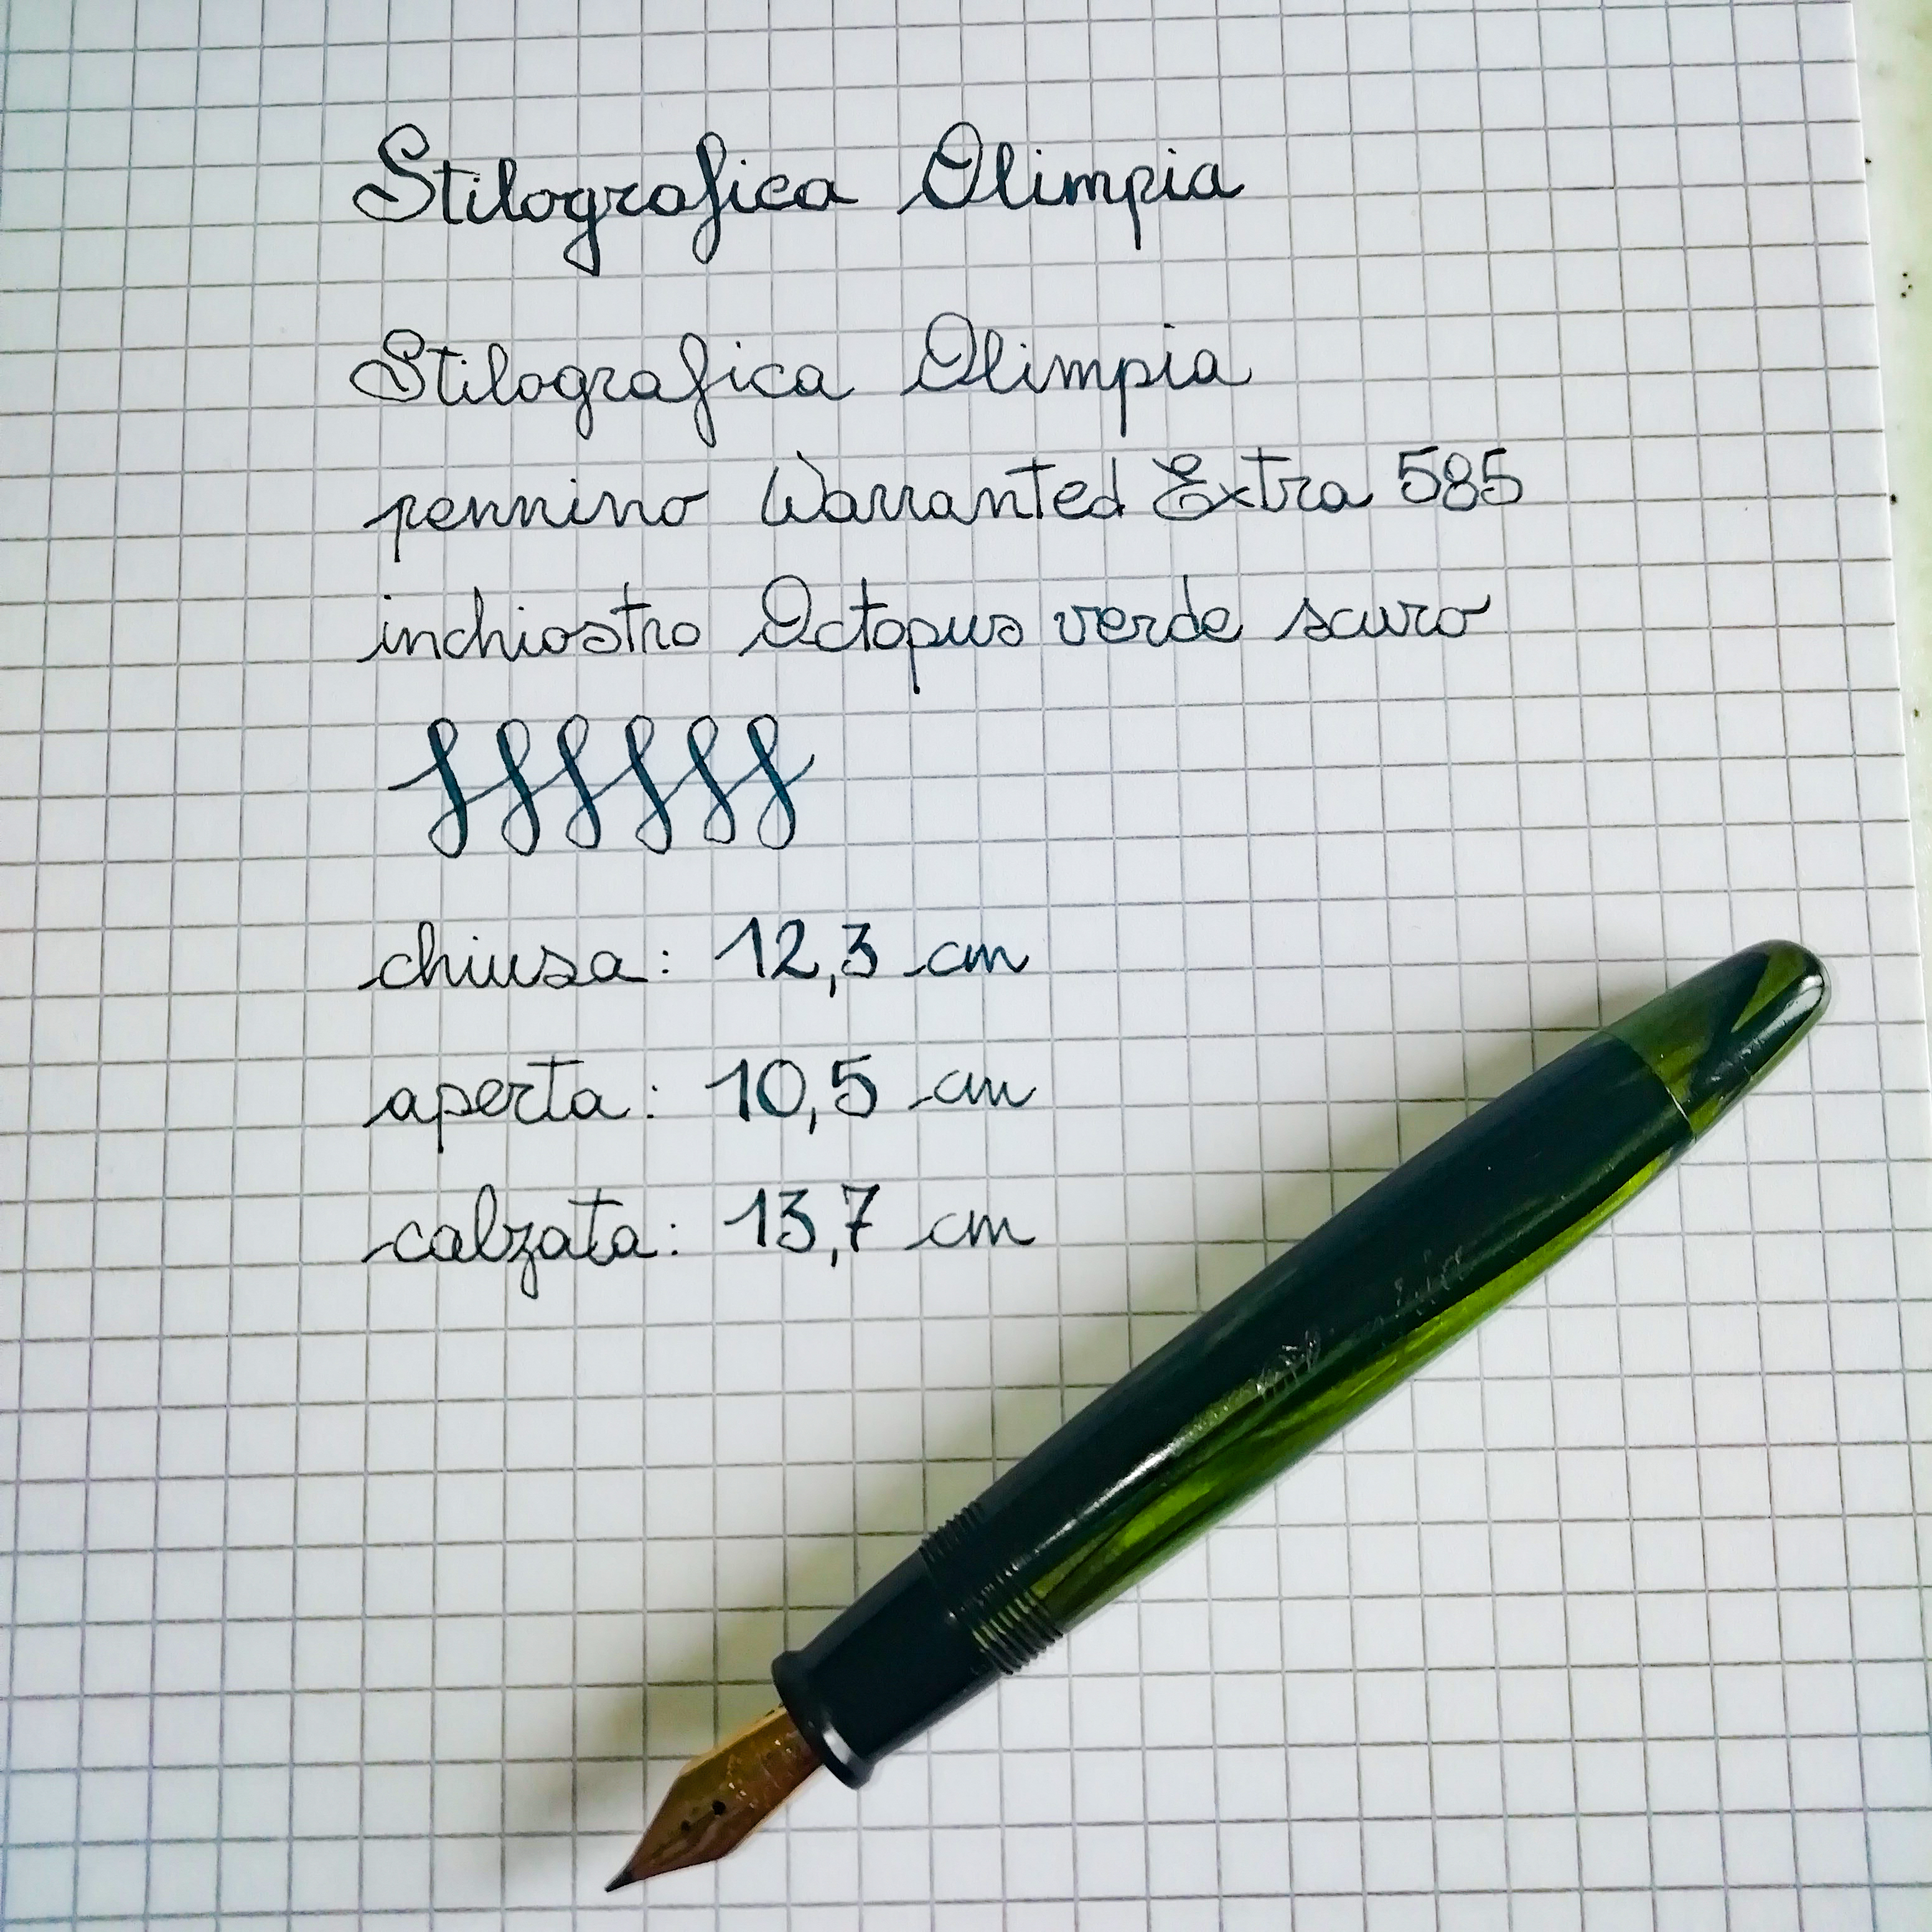 Stilografica Olimpia
Stilografica Olimpia
pennino Warranted Extra 585
inchiostro Octopus verde scuro
ffffff
chiusa: 12,3 cm
aperta: 10,5 cm
calzata: 13,7 cm